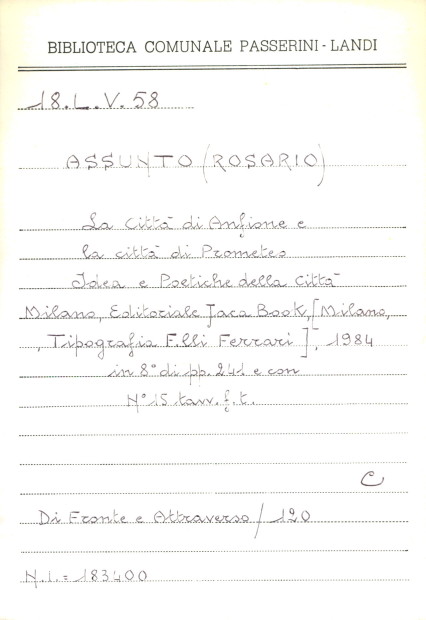 BIBLIOTECA COMUNALE PASSERINI - LANDI
18.L.V.58
ASSUNTO (ROSARIO)
La Città di Anfione e
la città di Prometeo
Idea e Poetiche della Città
Milano, Editoriale Jaca Book, [Milano,
, Tipografia F.lli Ferrari], 1984
in 8° di pp. 241 e con
N° 15 tavv. f. t.
C
Di Fronte e Attraverso / 120
N.I. = 183400